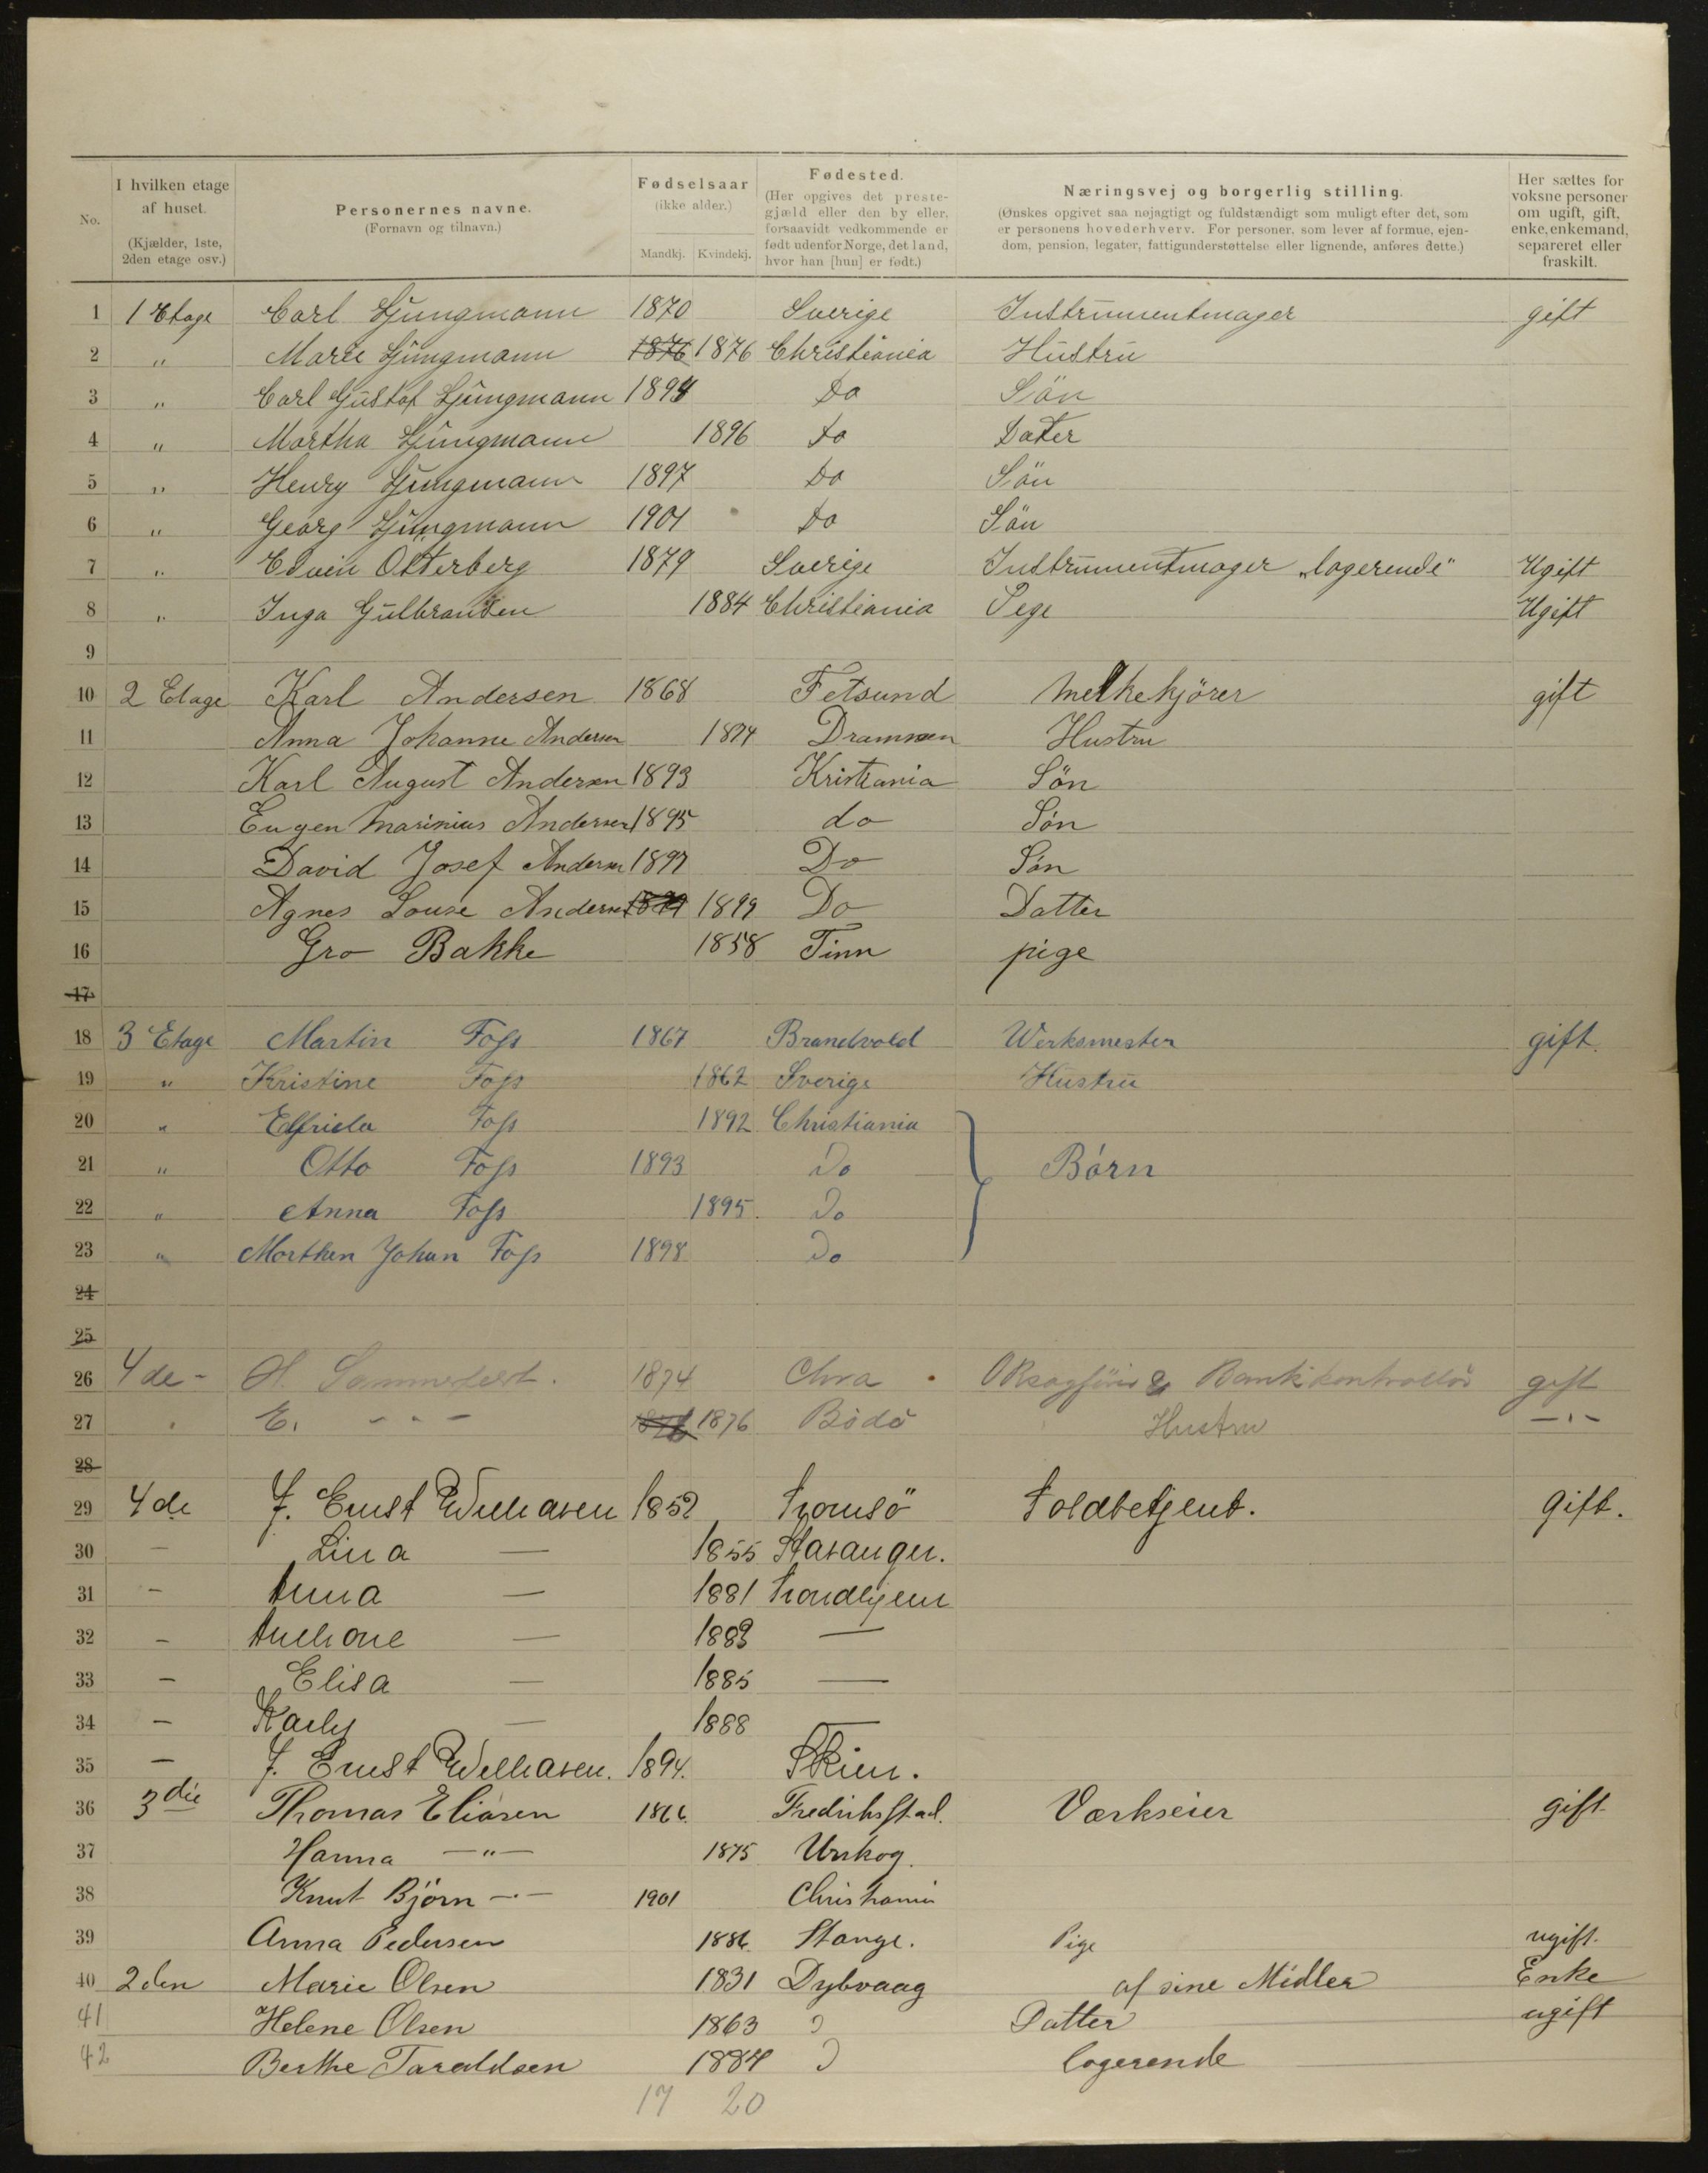 No. | I hvilken etage af huset. (Kjælder, 1ste, 2den etage osv.) | Personernes navne. (Fornavn og tilnavn.) | Fødselsaar (ikke alder.) Mandkj. Kvindekj. | Fødested. (Her opgives det prestegjæld eller den by eller, forsaavidt vedkommende er født udenfor Norge, det land, hvor han [hun] er født.) | Næringsvej og borgerlig stilling. (Ønskes opgivet saa nøjagtigt og fuldstændigt som muligt efter det, som er personens hovederhverv. For personer, som lever af formue, ejendom, pension, legater, fattigunderstøttelse eller lignende, anføres dette.) | Her sættes for voksne personer om ugift, gift, enke, enkemand, separeret eller fraskilt.
1 1 Etage Carl Ljungmann 1870 Sverige Instrumentmager gift
2 " Marie Ljungmann 1876 1876 Christiania Hustru
3 " Carl Gustaf Ljungmann 1894 Do Sön
4 " Martha Ljungmann 1896 Do Dater
5 " Henry Ljungmann 1897 Do Sön
6 " Georg Ljungmann 1901 Do Sön
7 " Edvin Otterberg 1879 Sverige Instrumentmager „logerende" Ugift
8 " Inga Gulbransen 1884 Christiania Pege Ugift
9
10 2 Etage Karl Andersen 1868 Fetsund Melkekjörer gift
11 Anna Johanne Andersen 1874 Drammen Hustru
12 Karl August Andersen 1893 Kristiania Sön
13 Eugen Marinius Andersen 1895 do Sön
14 David Josef Andersen 1897 Do Sön
15 Agnes Louse Andersen 1899 Do Datter
16 Gro Bakke 1858 Tinn pige
17
18 3 Etage Martin Foss 1867 Brandvold Werksmester gift.
19 " Kristine Foss 1862 Sverige Hustru
20 " Elfrida Foss 1892 Christiania
21 " Otto Foss 1893 Do Börn
22 " Anna Foss 1895. Do
23 " Morthen Johan Foss 1898 Do
24
25
26 4de - 1874 Chra. gift
27 " E. - " - 1876 Bödö Hustru - " -
28
29 4de J. Ernst Willassen 1852 Tromsö Toldbetjent. Gift.
30 - Lina — 1855 Stavanger.
31 - Anna — 1881 Trondhjem
32 - — 1883 —
33 - Elisa — 1885 —
34 - Karly — 1888 —
35 - J. Ernst Willassen. 1894. Skien.
36 3die Thomas Eliasen 1866. Fredriksstad. Værkseier gift
37 Hanna — " — 1875 Urskog.
38 Knut Björn - " - 1901 Christiania
39 Anna Pedersen 1886. Stange. Pige ugift.
40 2den Marie Olsen 1831 Dybvaag af sine Midler Enke
41 Helene Olsen 1863 " Datter ugift
42 Berthe Taraldsen 1884 " logerende
17 20